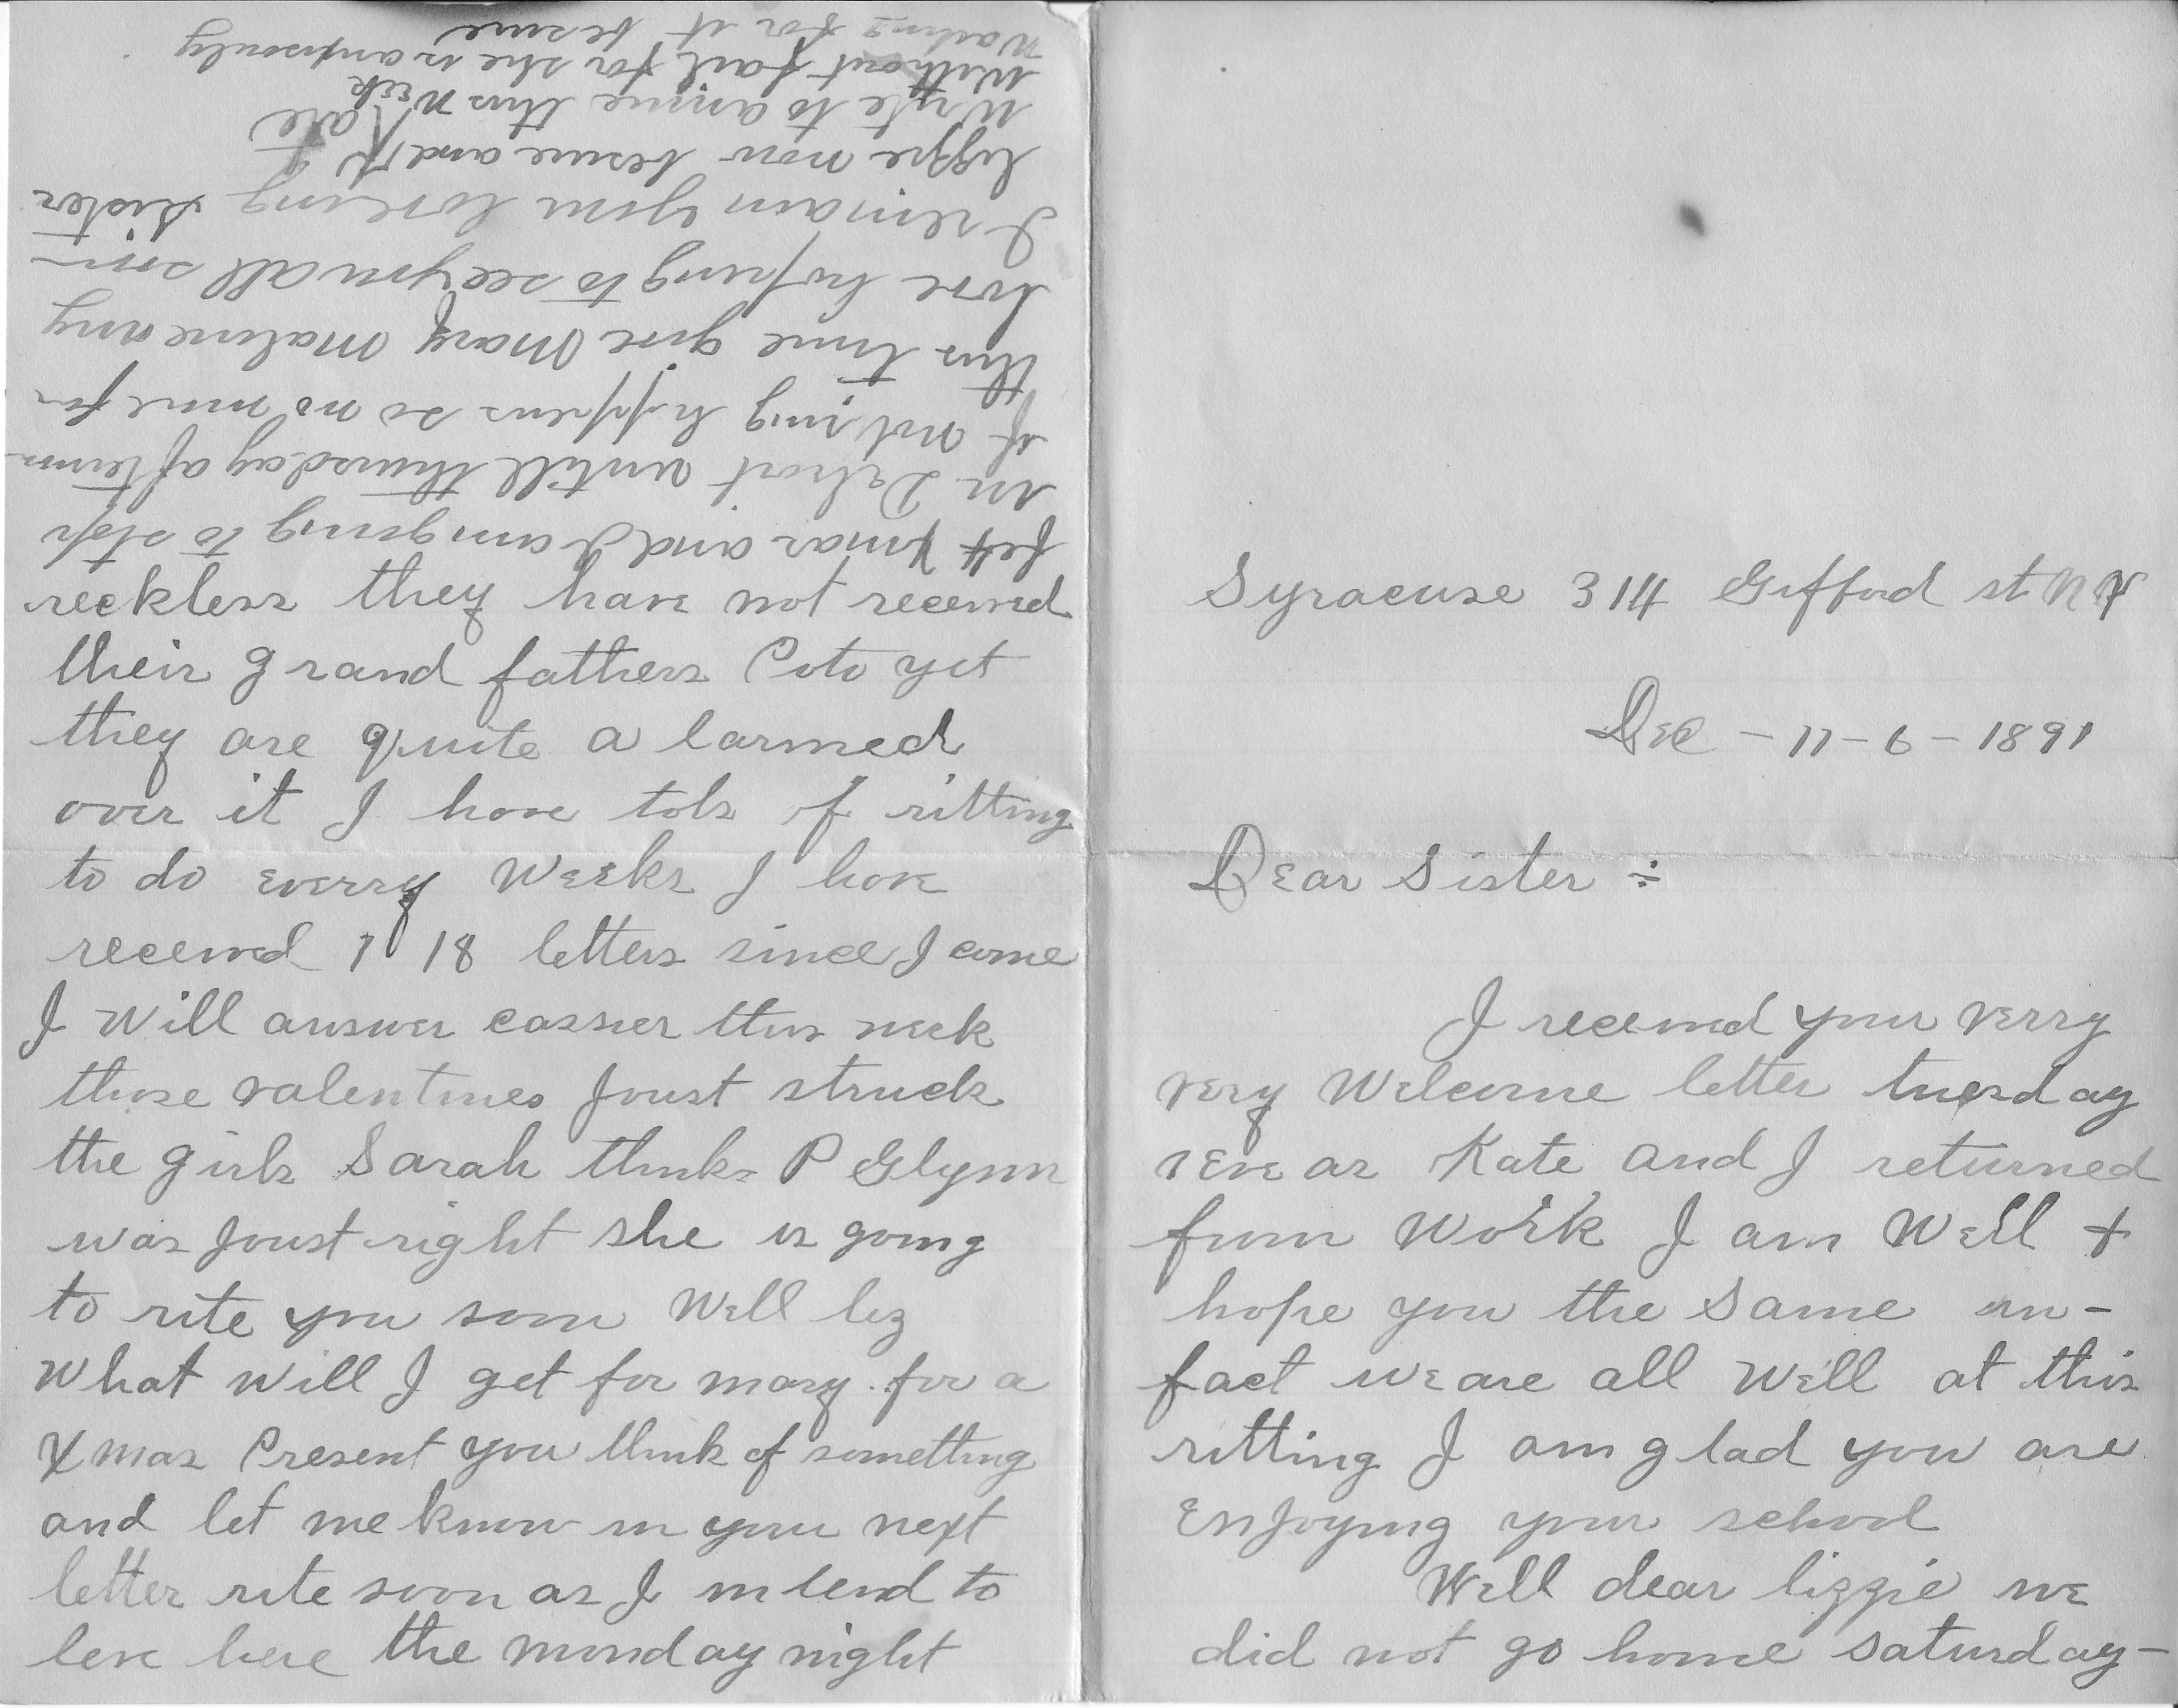 Syracuse 314 Gifford st N Y
Dec - 11 - 6 - 1891
Dear Sister ÷
I received your verry
very Welcome letter tuesday
as Kate and I returned
from Work I am Well +
hope you the Same an-
fact we are all Well at this
ritting I am glad you are
Enjoying your school
Well dear lizzie we
did not go home saturday-
reckless they have not received
their grand fathers Poto yet
they are quite a larmed
over it I have tols of ritting
to do everry Weeks I have
received 118 letters since I come
I Will answer cassier this week
those valentines Joust struck
the girls Sarah thinks P Glynn
was Joust right she is going
to rite you soon Well liz
What will I get for mary for a
Xmas Present you think of something
and let me know in your next
letter rite soon as I intend to
leve here the monday night
Xmas and I am going to stop
in Detroit untill thursday afternoon
if nothing happens so no more for
this time give Mary Malone any
love hoping to see you all soon
I remain your loveing sister
Kate
lizzie now besure and
Write to annie this Week
Without fail for she is
Waiting for it besure